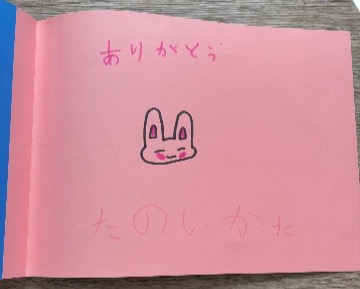 ありがとう
たのしかた